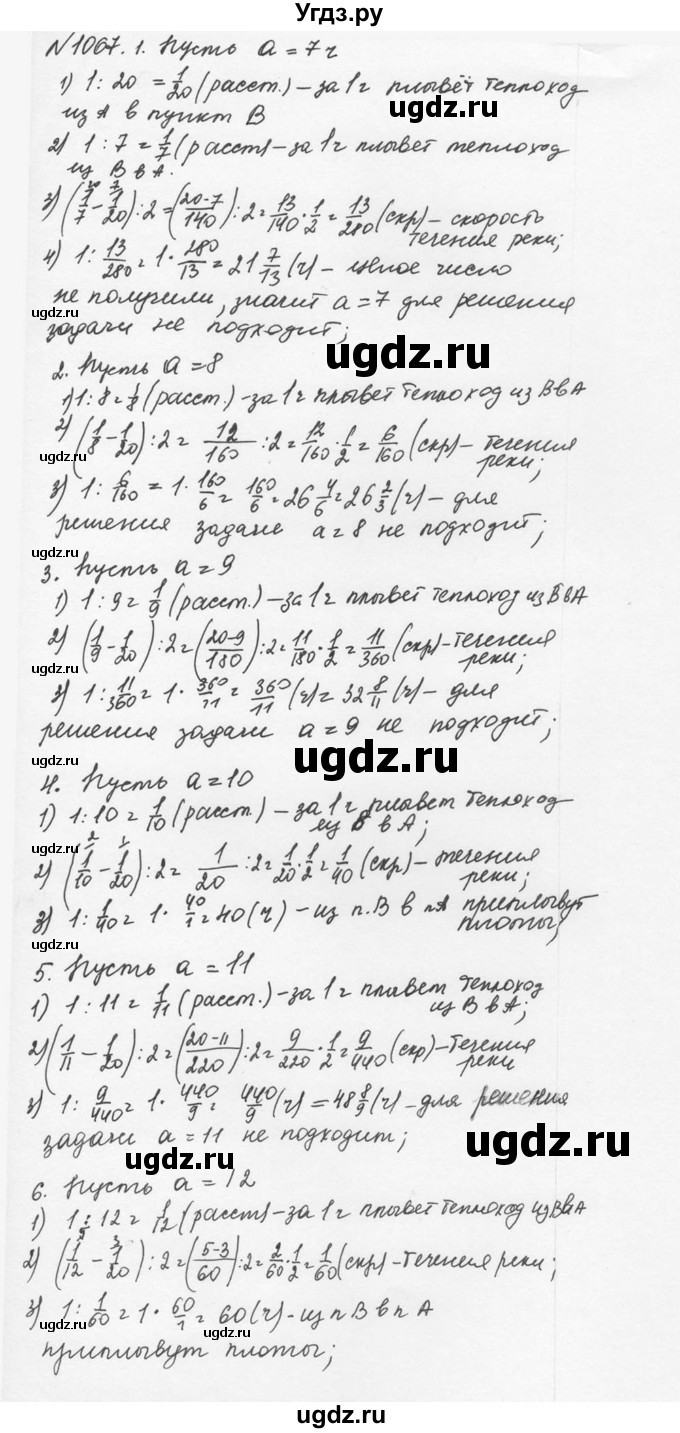 Угдз.ру
N1067. 1. Пусть a = 7 ч
1) 1 : 20 = 1/20 (расст.) – за 1 ч плывёт теплоход
из А в пункт В
2) 1 : 7 = 1/7 (расст) – за 1 ч плывет теплоход
из В в А.
3) (1/7 - 1/20) : 2 = ((20-7)/140) : 2 = 13/140 · 1/2 = 13/280 (скр) – скорость
течения реки;
4) 1 : 13/280 = 1 · 280/13 = 21 7/13 (ч) – целое число
не получили, значит a = 7 для решения
задачи не подходит;
2. Пусть a = 8
1) 1 : 8 = 1/8 (расст.) – за 1 ч плывет теплоход из В в А
2) (1/8 - 1/20) : 2 = 12/160 : 2 = 12/160 · 1/2 = 6/160 (скр) – течения
реки;
3) 1 : 6/160 = 1 · 160/6 = 160/6 = 26 4/6 = 26 2/3 (ч) – для
решения задачи a = 8 не подходит;
3. Пусть a = 9
1) 1 : 9 = 1/9 (расст.) – за 1 ч плывет теплоход из В в А
2) (1/9 - 1/20) : 2 = ((20-9)/180) : 2 = 11/180 · 1/2 = 11/360 (скр) – течения
реки;
3) 1 : 11/360 = 1 · 360/11 = 360/11 (ч) = 32 8/11 (ч) – для
решения задачи a = 9 не подходит;
4. Пусть a = 10
1) 1 : 10 = 1/10 (расст.) – за 1 ч плывет теплоход
из В в А;
2) (1/10 - 1/20) : 2 = 1/20 : 2 = 1/20 · 1/2 = 1/40 (скр) – течения
реки;
3) 1 : 1/40 = 1 · 40/1 = 40 (ч) – из п. В в п А приплывут
плоты;
5. Пусть a = 11
1) 1 : 11 = 1/11 (расст.) – за 1 ч плывет теплоход
из В в А;
2) (1/11 - 1/20) : 2 = ((20-11)/220) : 2 = 9/220 · 1/2 = 9/440 (скр) – течения
реки
3) 1 : 9/440 = 1 · 440/9 = 440/9 (ч) = 48 8/9 (ч) – для решения
задачи a = 11 не подходит;
6. Пусть a = 12
1) 1 : 12 = 1/12 (расст) – за 1 ч плывет теплоход из В в А
2) (1/12 - 1/20) : 2 = ((5-3)/60) : 2 = 2/60 · 1/2 = 1/60 (скр) – течения реки;
3) 1 : 1/60 = 1 · 60/1 = 60 (ч) – из п В в п А
приплывут плоты;
ugdz.ru